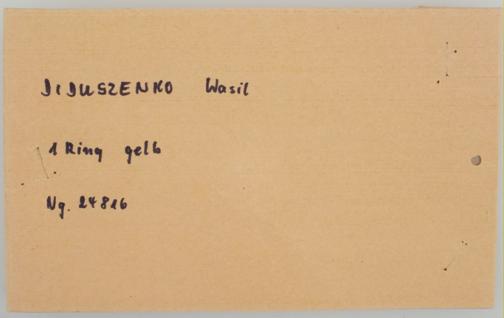 DIDUSZENKO Wasil
1 Ring gelb
Ng. 24816